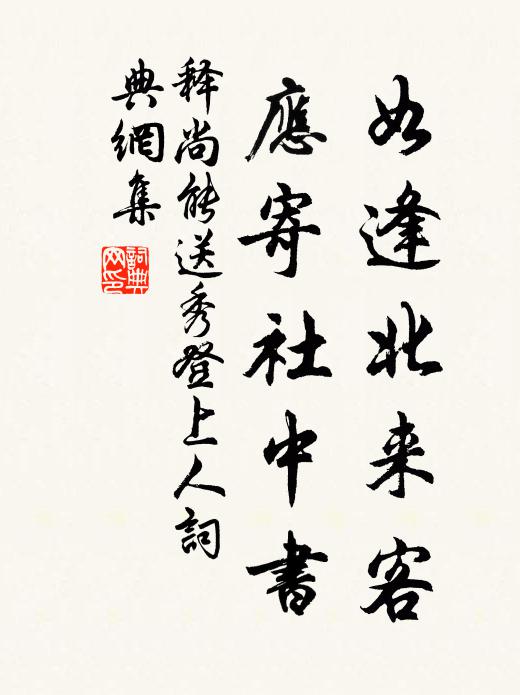 如逢北来客
應寄社中書
释尚能送秀登上人詞
典網集
詞典
网印